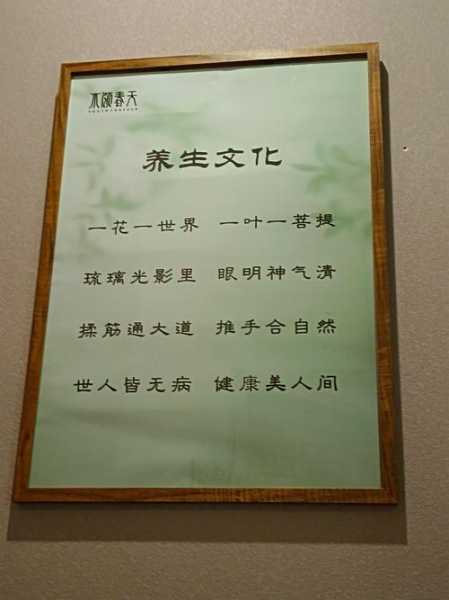 不颐春天
养生文化
一花一世界 一叶一菩提
琉璃光影里 眼明神气清
揉筋通大道 推手合自然
世人皆无病 健康美人间